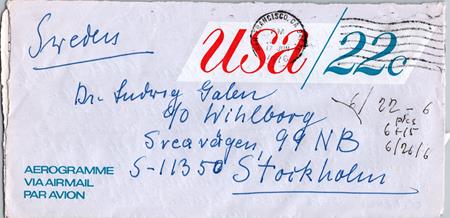 Sweden
FRANCISCO, CA
usa/22c
Dr. Ludwig Galen
c/o Wihlborg
Sveavägen, 99 NB
S-11350 Stockholm
AEROGRAMME
VIA AIRMAIL
PAR AVION
6/22-6
pics
6/26/6